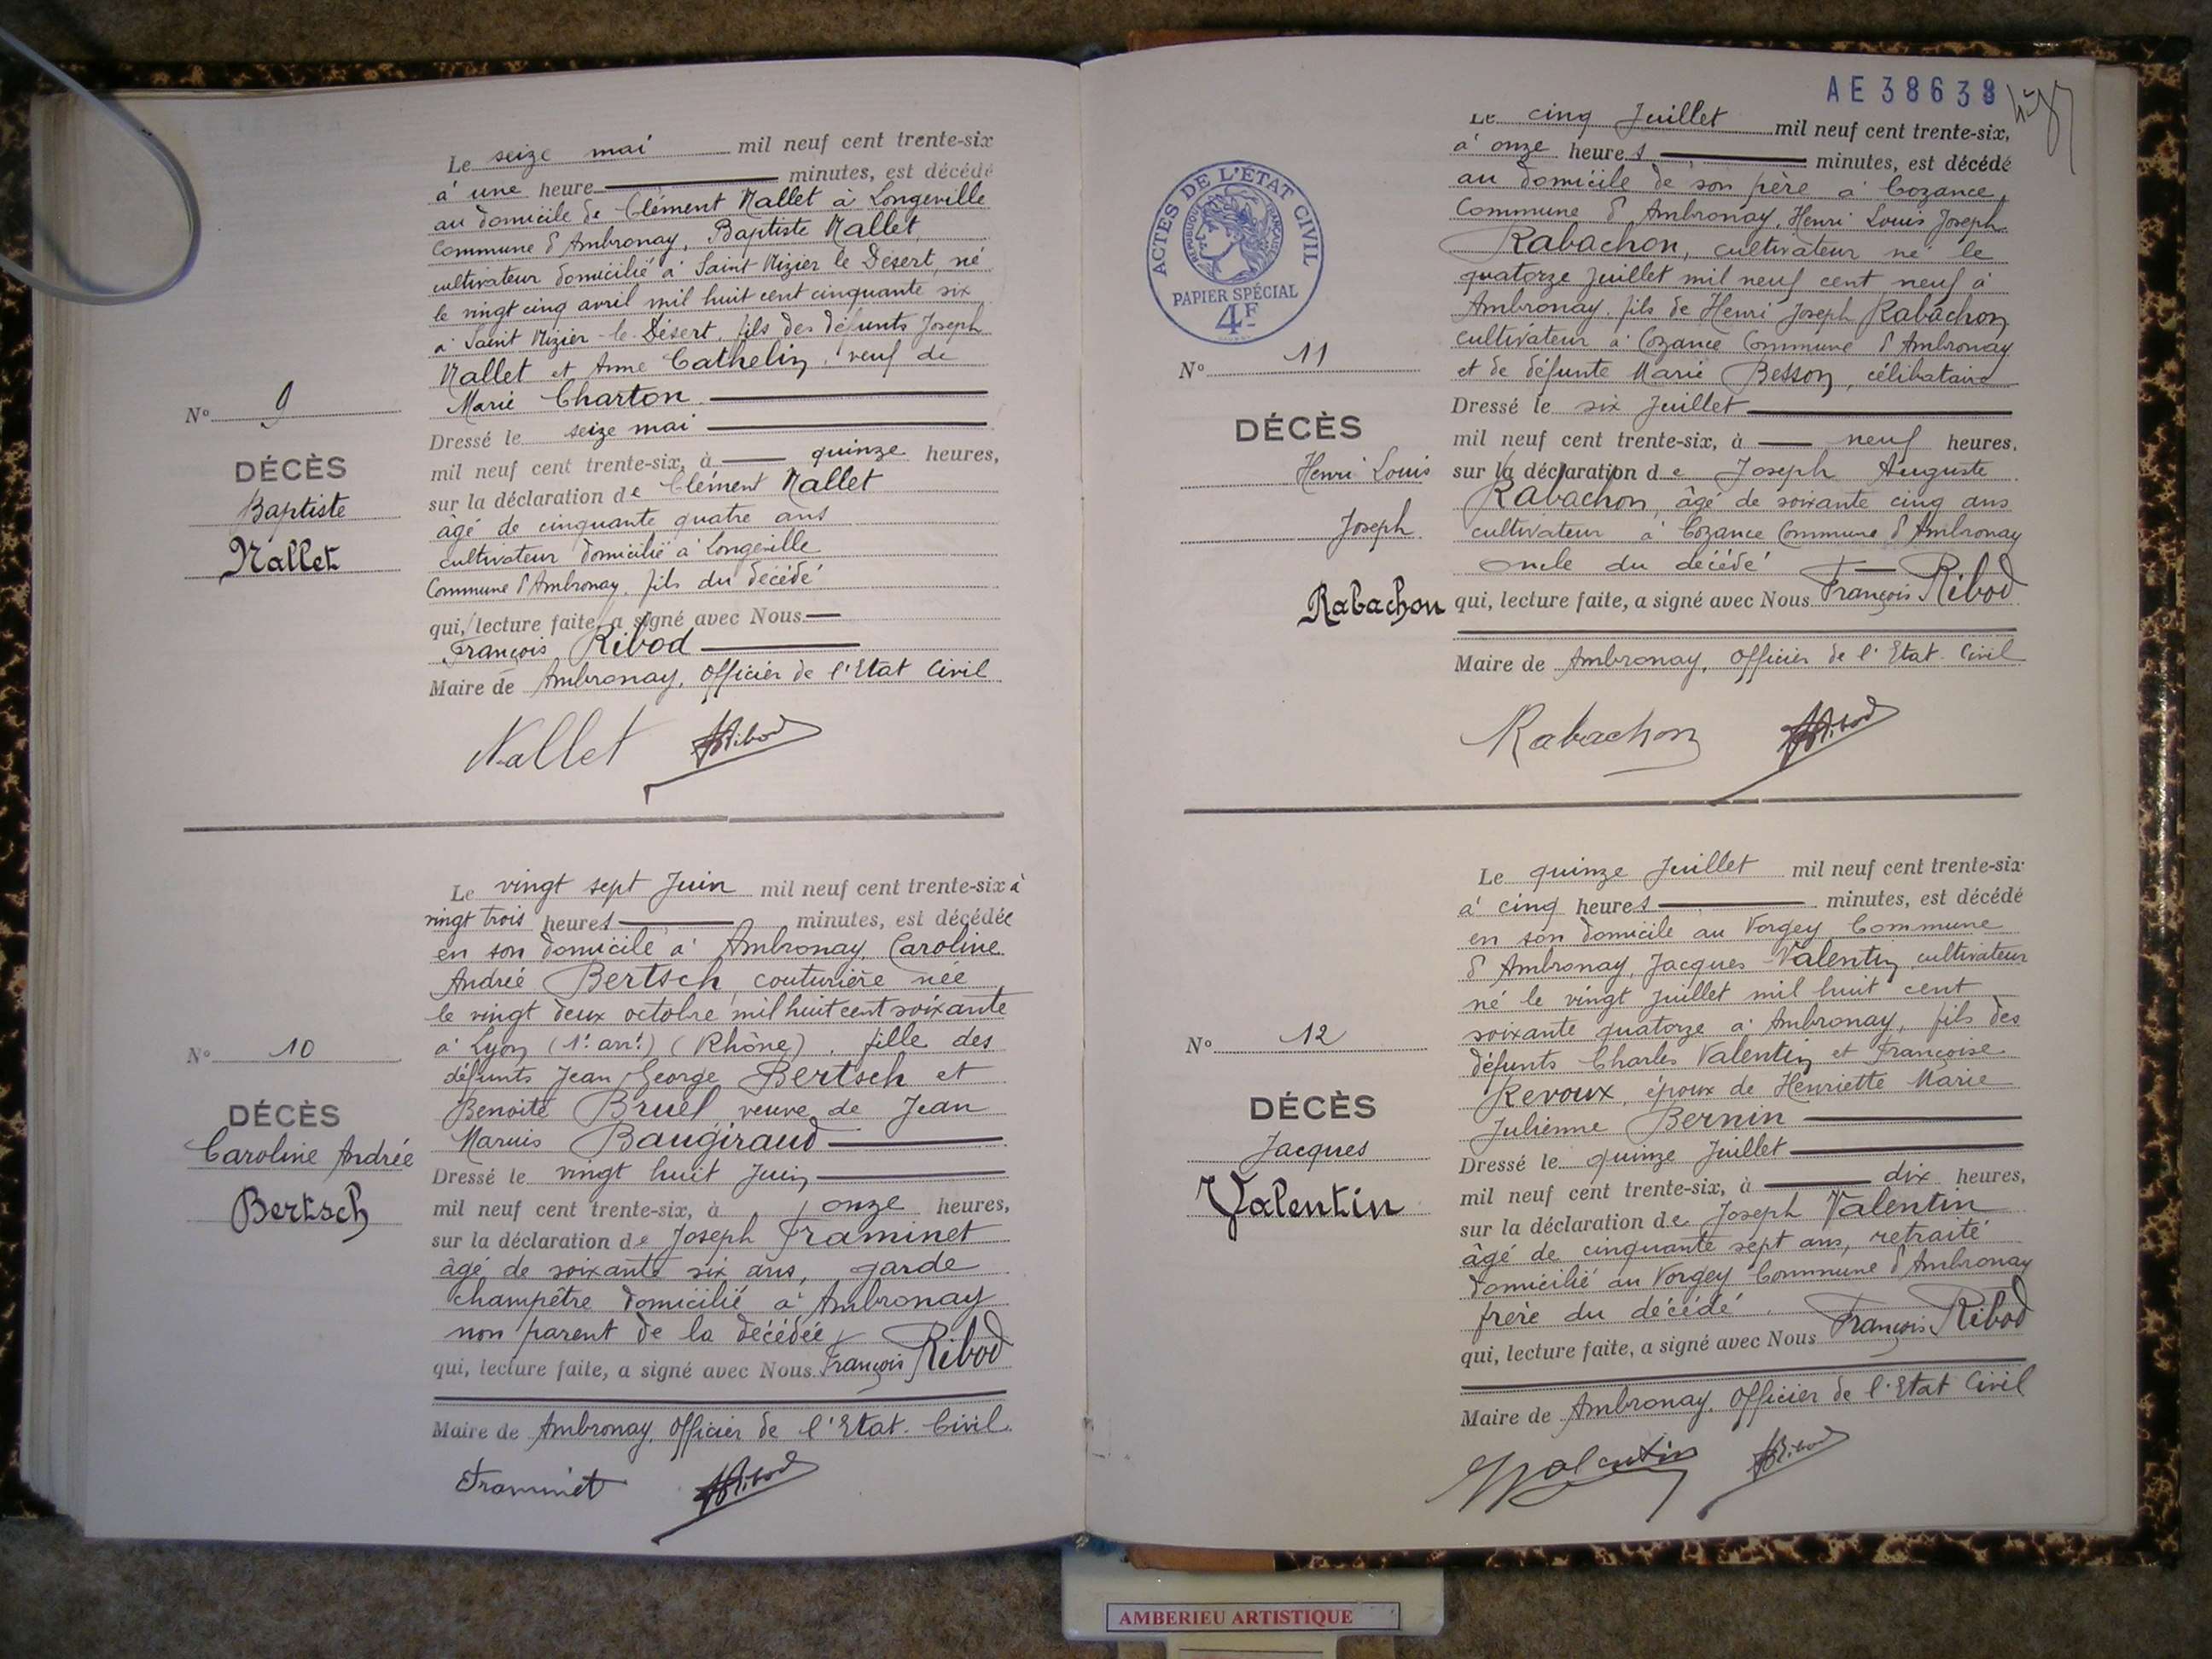 Le seize mai mil neuf cent trente-six
à une heure minutes, est décédé
au domicile de Clément Nallet à Longeville
Commune d'Ambronay, Baptiste Nallet,
cultivateur domicilié à Saint Nizier le Désert, né
le vingt cinq avril mil huit cent cinquante six
à Saint Nizier-le-Désert, fils des défunts Joseph
Nallet et Anne Cathelin, veuf de
Marie Charton.
N° 9
DÉCÈS
Baptiste
Nallet
Dressé le seize mai
mil neuf cent trente-six, à quinze heures,
sur la déclaration de Clément Nallet
âgé de cinquante quatre ans
cultivateur domicilié à Longeville
Commune d'Ambronay, fils du décédé
qui, lecture faite, a signé avec Nous
François Ribod
Maire de Ambronay, Officier de l'Etat Civil
Nallet Ribod
Le vingt sept Juin mil neuf cent trente-six à
vingt trois heures minutes, est décédée
en son domicile à Ambronay, Caroline
Andrée Bertsch, couturière née
le vingt deux octobre mil huit cent soixante
à Lyon (1er arrt) (Rhône), fille des
défunts Jean George Bertsch et
Benoite Bruel veuve de Jean
Marius Baugiraud
N° 10
DÉCÈS
Caroline Andrée
Bertsch
Dressé le vingt huit Juin
mil neuf cent trente-six, à onze heures,
sur la déclaration de Joseph Framinet
âgé de soixante six ans, garde
champêtre domicilié à Ambronay
non parent de la décédée
qui, lecture faite, a signé avec Nous François Ribod
Maire de Ambronay, Officier de l'Etat-Civil.
Framinet Ribod
AE 38638
Le cinq Juillet mil neuf cent trente-six,
à onze heures minutes, est décédé
au domicile de son père à Cozance,
Commune d'Ambronay, Henri Louis Joseph
Rabachon, cultivateur né le
quatorze Juillet mil neuf cent neuf à
Ambronay, fils de Henri Joseph Rabachon
cultivateur à Cozance Commune d'Ambronay
et de défunte Marie Besson, célibataire
ACTES DE L'ÉTAT CIVIL
RÉPUBLIQUE FRANÇAISE
PAPIER SPÉCIAL
4F
N° 11
DÉCÈS
Henri Louis
Joseph
Rabachon
Dressé le six Juillet
mil neuf cent trente-six, à neuf heures,
sur la déclaration de Joseph Auguste
Rabachon, âgé de soixante cinq ans
cultivateur à Cozance Commune d'Ambronay
oncle du décédé
qui, lecture faite, a signé avec Nous François Ribod
Maire de Ambronay, Officier de l'Etat-Civil
Rabachon Ribod
Le quinze Juillet mil neuf cent trente-six
à cinq heures minutes, est décédé
en son domicile au Vorgey Commune
d'Ambronay, Jacques Valentin, cultivateur
né le vingt Juillet mil huit cent
soixante quatorze à Ambronay, fils des
défunts Charles Valentin et Françoise
Revoux, époux de Henriette Marie
Julienne Bernin
N° 12
DÉCÈS
Jacques
Valentin
Dressé le quinze Juillet
mil neuf cent trente-six, à dix heures,
sur la déclaration de Joseph Valentin
âgé de cinquante sept ans, retraité
domicilié au Vorgey Commune d'Ambronay
frère du décédé.
qui, lecture faite, a signé avec Nous François Ribod
Maire de Ambronay, Officier de l'Etat Civil
Valentin Ribod
AMBERIEU ARTISTIQUE